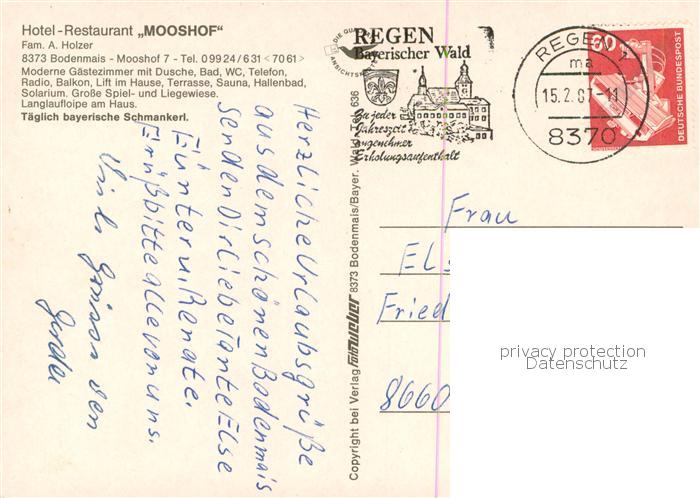 Hotel-Restaurant „MOOSHOF“
Fam. A. Holzer
8373 Bodenmais - Mooshof 7 - Tel. 09924/631 <7061>
Moderne Gästezimmer mit Dusche, Bad, WC, Telefon,
Radio, Balkon, Lift im Hause, Terrasse, Sauna, Hallenbad,
Solarium. Große Spiel- und Liegewiese.
Langlaufloipe am Haus.
Täglich bayerische Schmankerl.
Herzliche Urlaubsgrüße
aus dem schönen Bodenmais
senden Dir liebe Tante Else
Günter u. Renate.
Grüß bitte alle von uns.
Viele Grüsse von
Gerda
Copyright bei Verlag Foto Weber 8373 Bodenmais/Bayer. Wald
636
REGEN
Bayerischer Wald
Zu jeder
Jahreszeit
angenehmer
Erholungsaufenthalt
REGEN 1
ma
15.2.87-11
8370
60
DEUTSCHE BUNDESPOST
Frau
Els
Fried
8660
privacy protection
Datenschutz